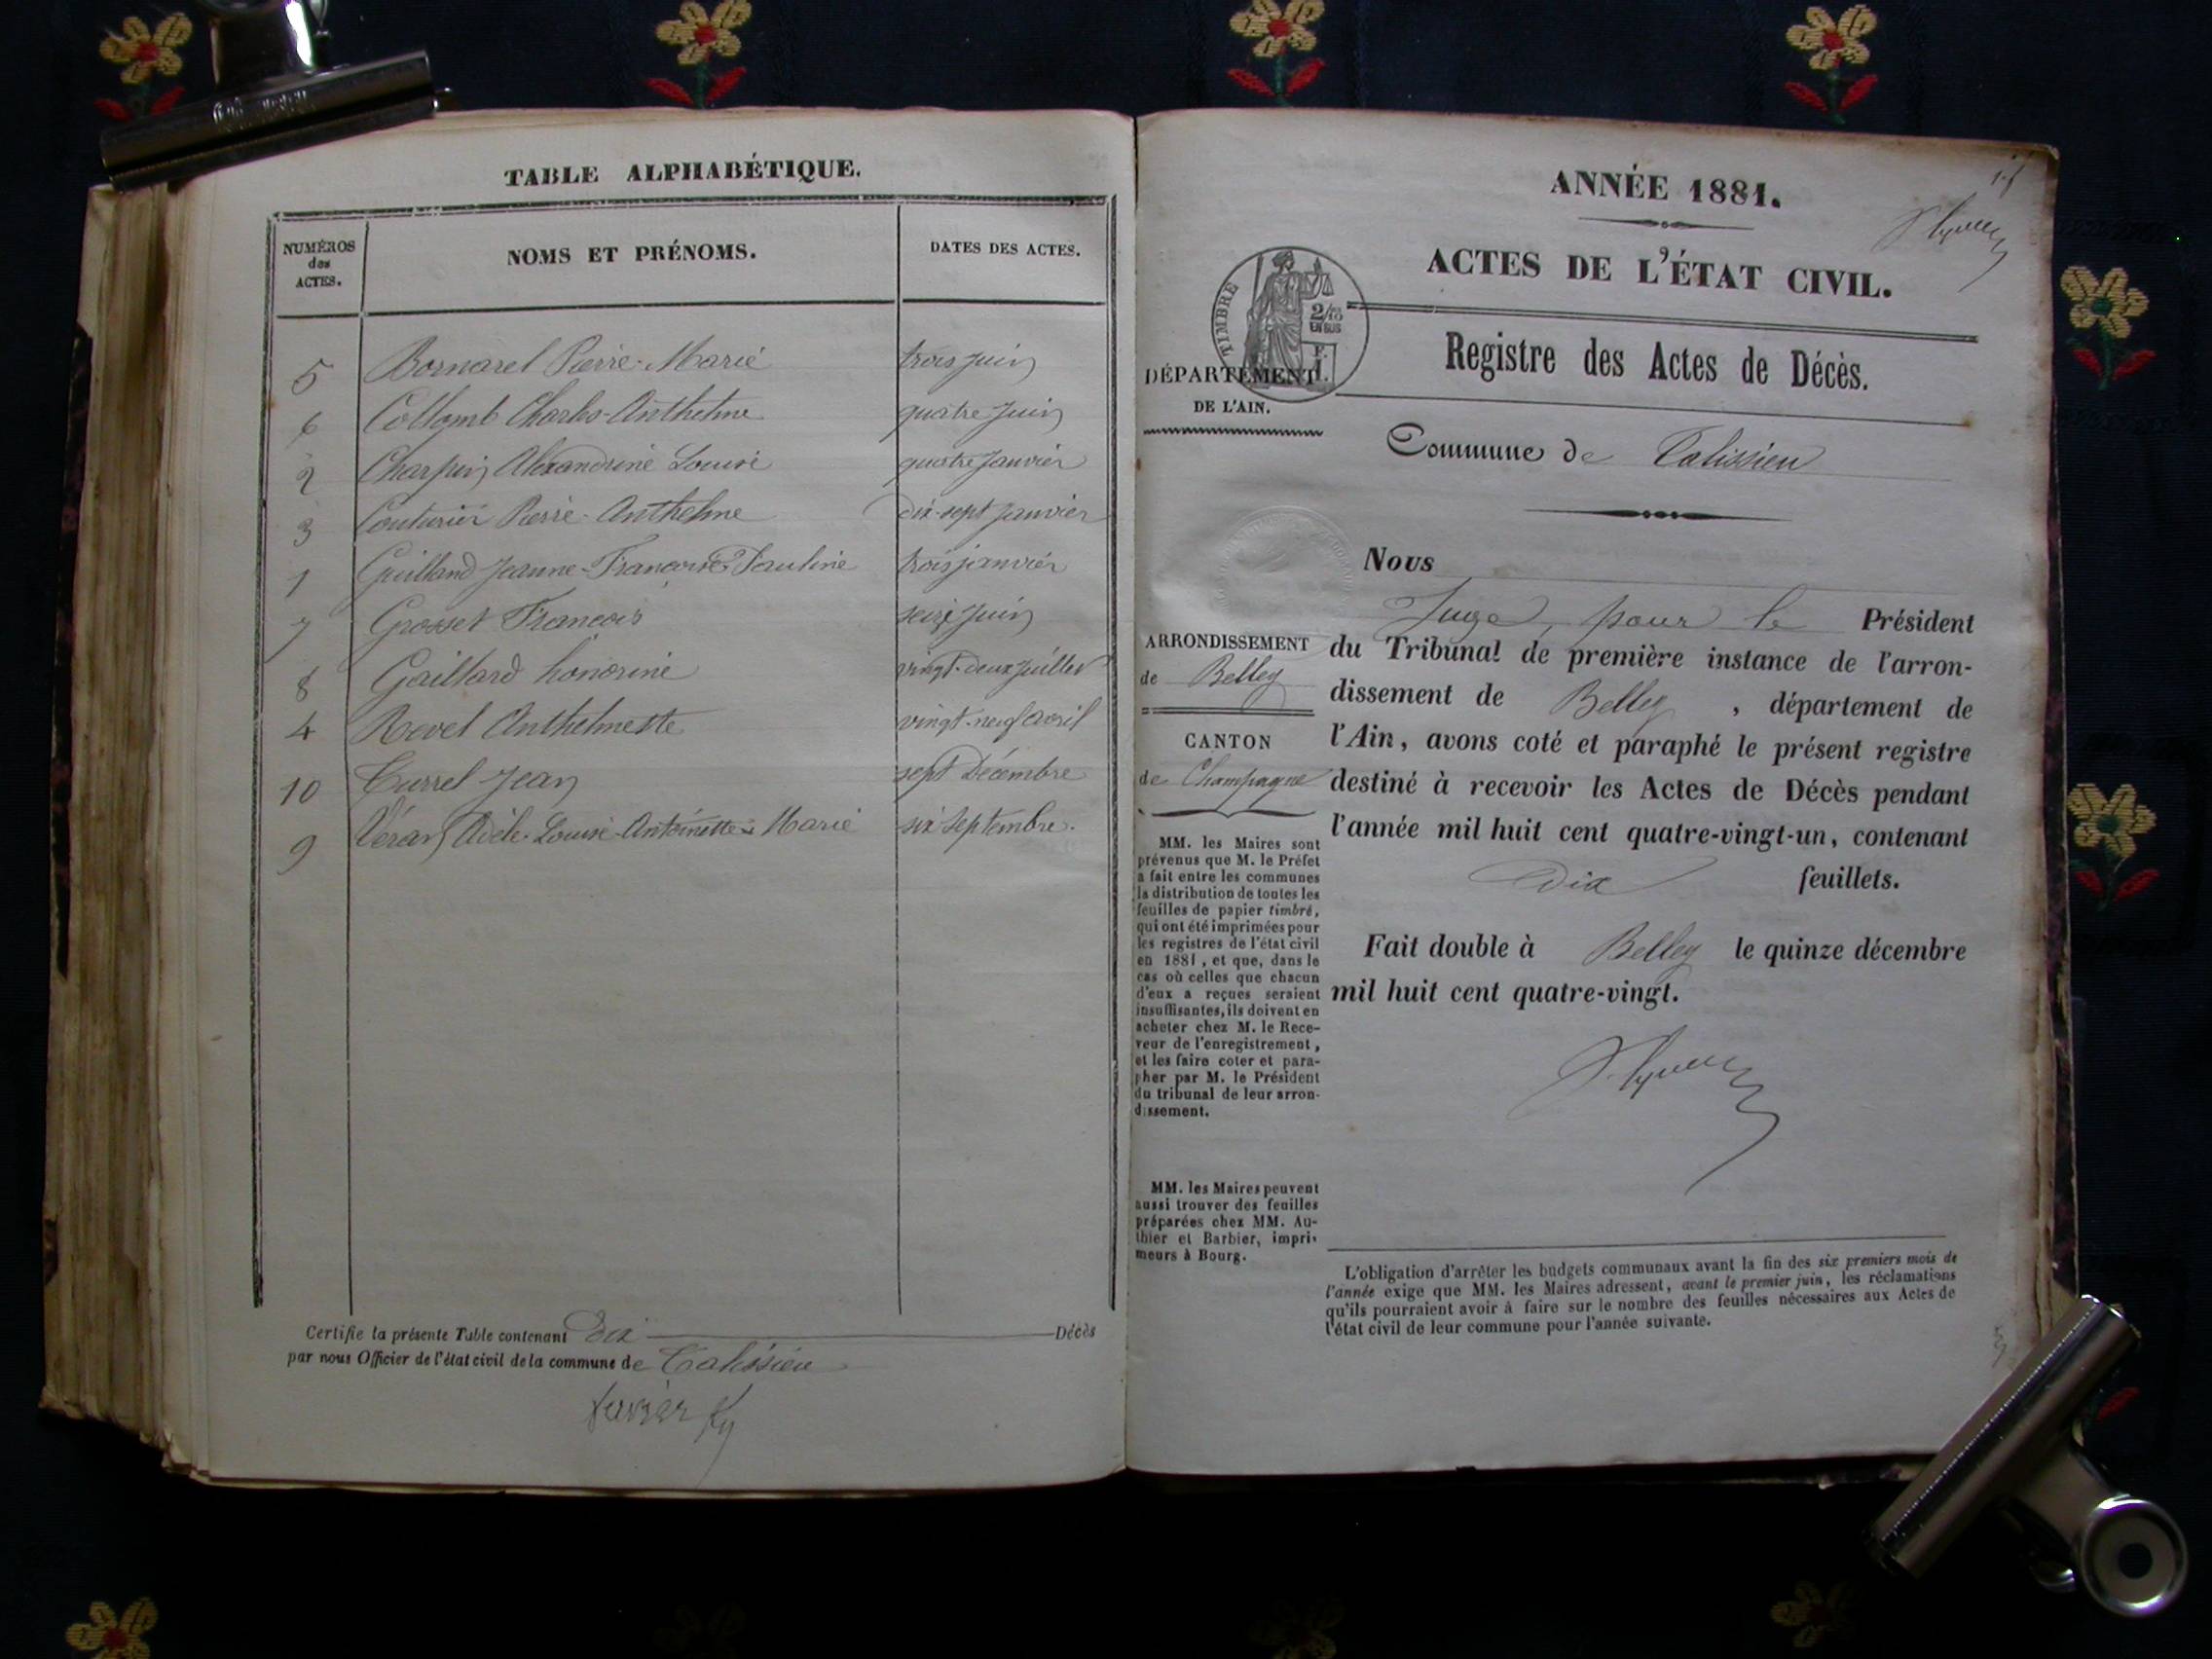 TABLE ALPHABÉTIQUE.
NUMÉROS
des
ACTES.
NOMS ET PRÉNOMS.
DATES DES ACTES.
5 Bornarel Pierre-Marie trois juin
6 Collomb Charles-Anthelme quatre Juin
2 Charpin Alexandrine Louise quatre Janvier
3 Couturier Pierre-Anthelme dix-sept janvier
1 Guilland Jeanne-Françoise-Pauline trois janvier
7 Grosset Francois seize Juin
8 Gaillard honorine vingt-deux juillet
4 Revel Anthelmette vingt-neuf avril
10 Currel Jean sept Décembre
9 Véran Adèle-Louise-Antoinette-Marie six Septembre.
Certifie la présente Table contenant Dix Décès
par nous Officier de l'état civil de la commune de Talissieu
ANNÉE 1881.
ACTES DE L'ÉTAT CIVIL.
TIMBRE
2/10
EN SUS
DÉPARTEMENT
DE L'AIN.
Registre des Actes de Décès.
Commune de Talissieu
Nous
Juge, pour le Président
du Tribunal de première instance de l'arron-
dissement de Belley, département de
l'Ain, avons coté et paraphé le présent registre
destiné à recevoir les Actes de Décès pendant
l'année mil huit cent quatre-vingt-un, contenant
Dix feuillets.
Fait double à Belley le quinze décembre
mil huit cent quatre-vingt.
ARRONDISSEMENT
de Belley
CANTON
de Champagne
MM. les Maires sont
prévenus que M. le Préfet
a fait entre les communes
la distribution de toutes les
feuilles de papier timbré,
qui ont été imprimées pour
les registres de l'état civil
en 1881, et que, dans le
cas où celles que chacun
d'eux a reçues seraient
insuffisantes, ils doivent en
acheter chez M. le Rece-
veur de l'enregistrement,
et les faire coter et para-
pher par M. le Président
du tribunal de leur arron-
dissement.
MM. les Maires peuvent
aussi trouver des feuilles
préparées chez MM. Au-
thier et Barbier, impri-
meurs à Bourg.
L'obligation d'arrêter les budgets communaux avant la fin des six premiers mois de
l'année exige que MM. les Maires adressent, avant le premier juin, les réclamations
qu'ils pourraient avoir à faire sur le nombre des feuilles nécessaires aux Actes de
l'état civil de leur commune pour l'année suivante.